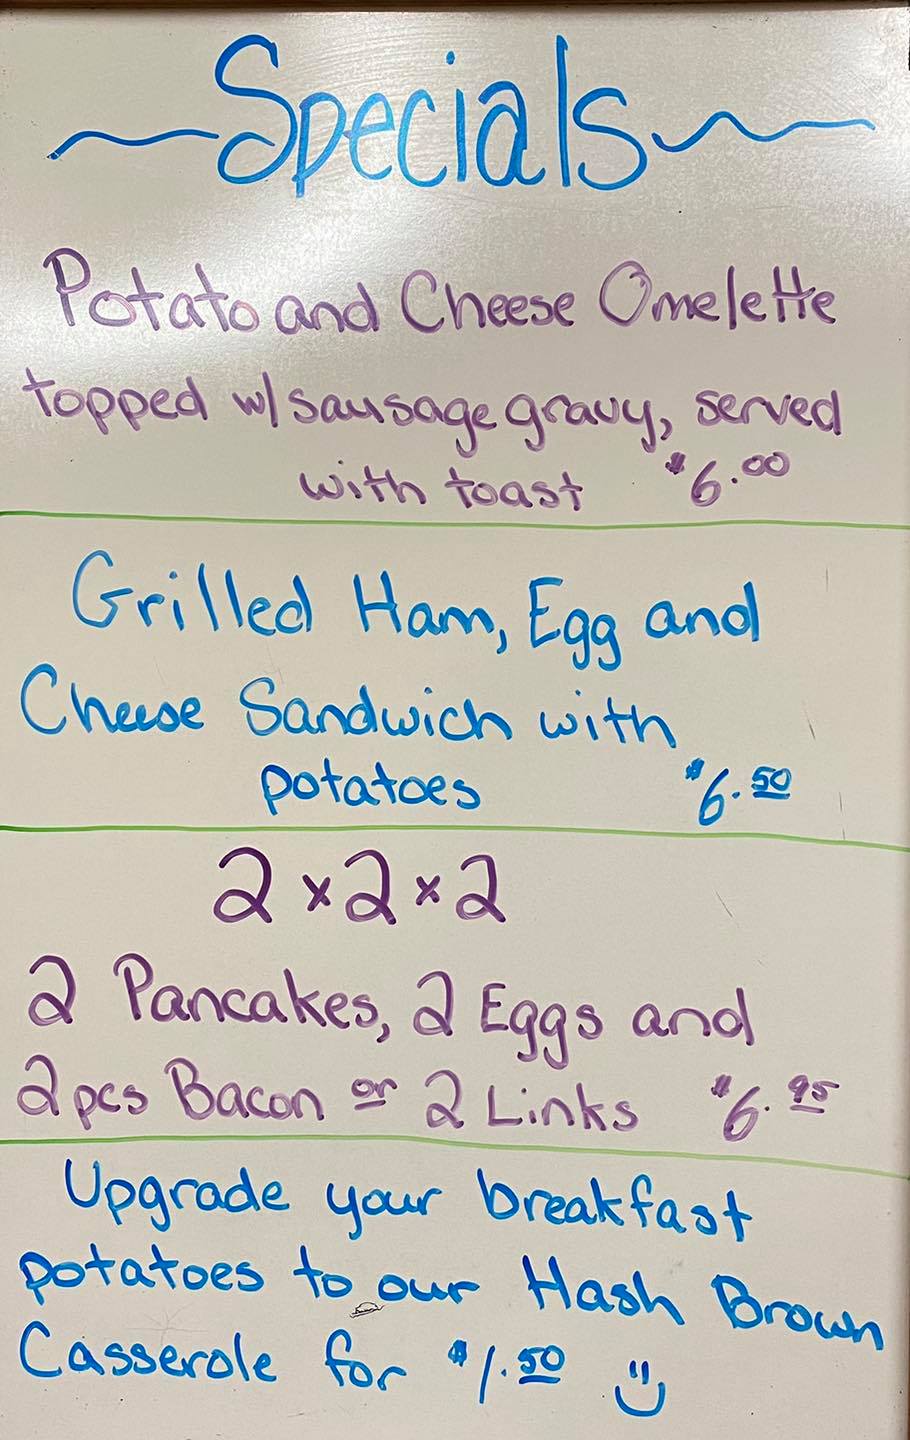 Specials
Potato and Cheese Omelette
topped w/sausage gravy, served
with toast $6.00
Grilled Ham, Egg and
Cheese Sandwich with
potatoes $6.50
2 x 2 x 2
2 Pancakes, 2 Eggs and
2pcs Bacon or 2 Links $6.95
Upgrade your breakfast
potatoes to our Hash Brown
Casserole for $1.50